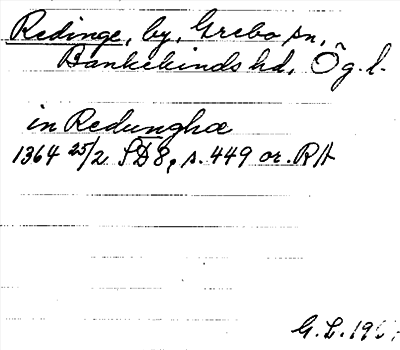 Redinge, by, Grebo sn,
Bankekinds hd, Ög.l.
in Redunghæ
1364 25/2 SD8, s. 449 or. RA
G.L.